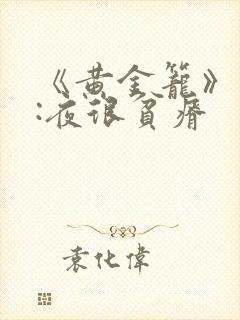 《黄金籠》
:夜很貧瘠
袁化偉